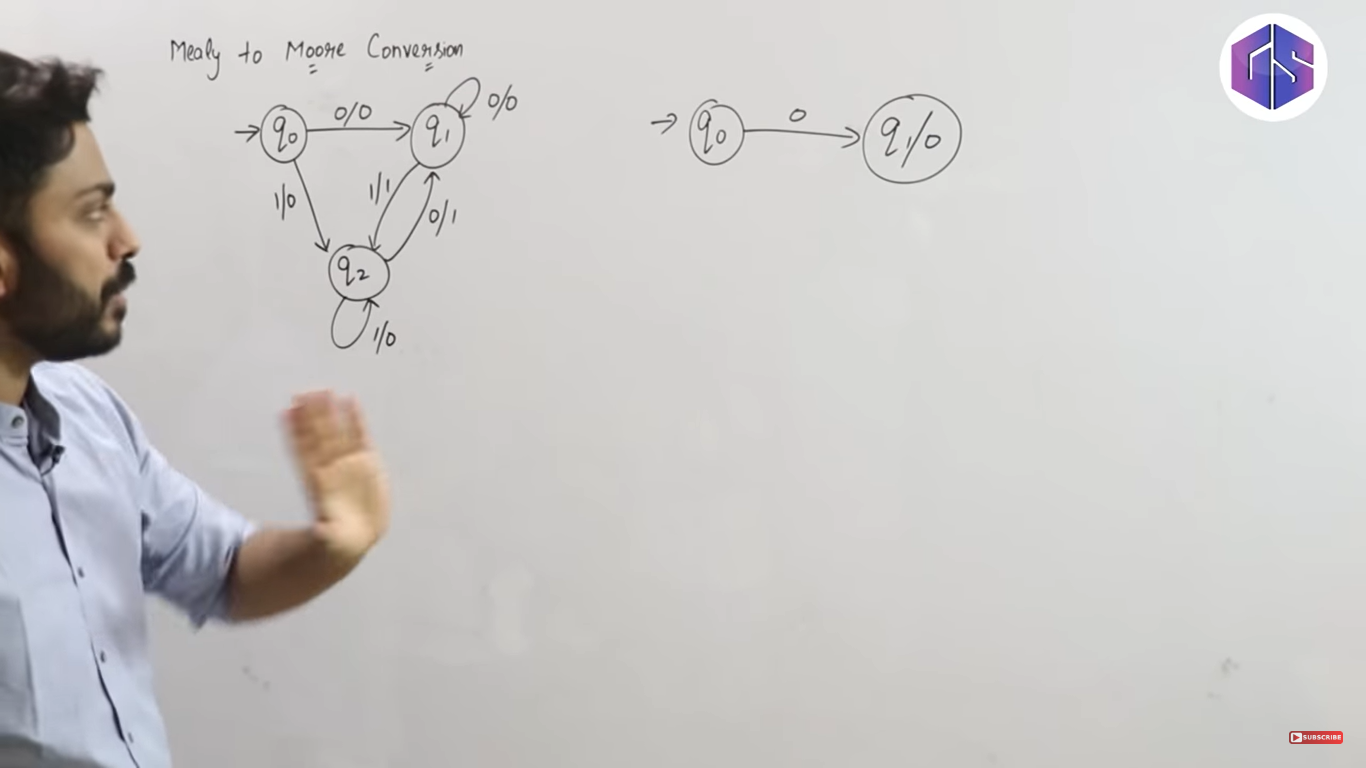 Mealy to Moore Conversion
0/0
q₀
q₁
0/0
1/0
1/1
0/1
q₂
1/0
q₀
0
q₁/0
GS
SUBSCRIBE